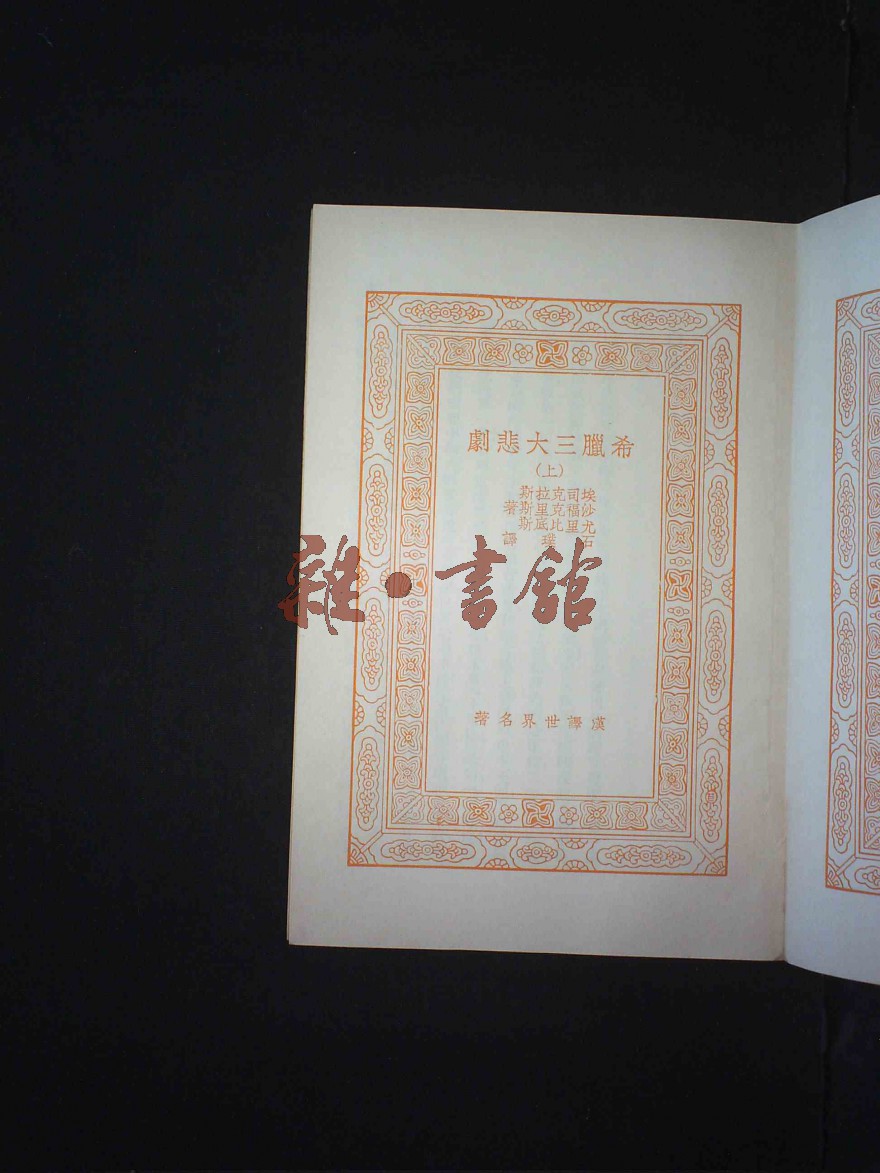 希臘三大悲劇
(上)
埃司克拉斯
沙福克里斯著
尤里比底斯
石璞譯
雜·書館
漢譯世界名著